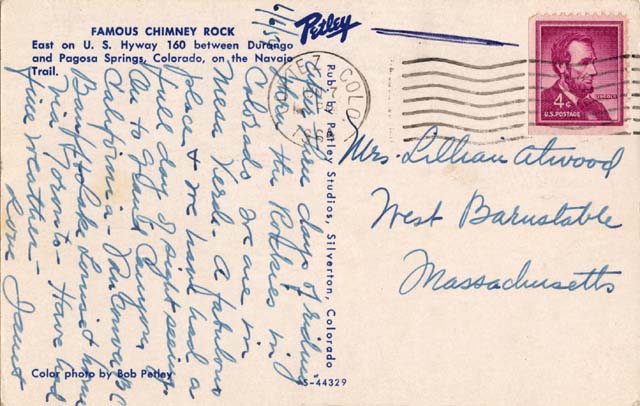 FAMOUS CHIMNEY ROCK
East on U. S. Hyway 160 between Durango
and Pagosa Springs, Colorado, on the Navajo
Trail.
Petley
EZ COLO
4¢
U.S. POSTAGE
Pub. by Petley Studios, Silverton, Colorado
After three days of riding
thru the Rockies in
Colorado we are in
Mesa Verde. A fabulous
place & we have had a
full day of sight seeing.
On to Grand Canyon
California - Vancouver BC
Banff & Lake Louise & home
via Toronto - Have had
fine weather -
Love Janet
Mrs. Lillian Atwood
West Barnstable
Massachusetts
Color photo by Bob Petley
S-44329